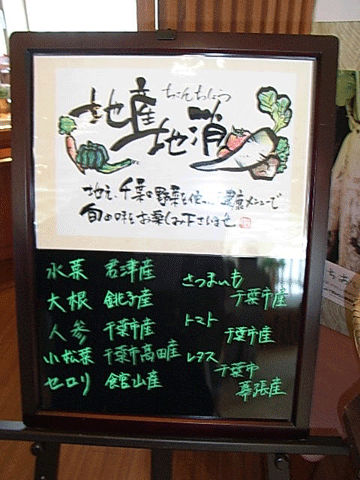 ちさんちしょう
地産
地消
地元、千葉の野菜を使った健康メニューで
旬の味をお楽しみ下さいませ
水菜 君津産
大根 銚子産
人参 千葉市産
小松菜 千葉市高田産
セロリ 館山産
さつまいも
千葉市産
トマト
千葉市産
レタス
千葉市
幕張産